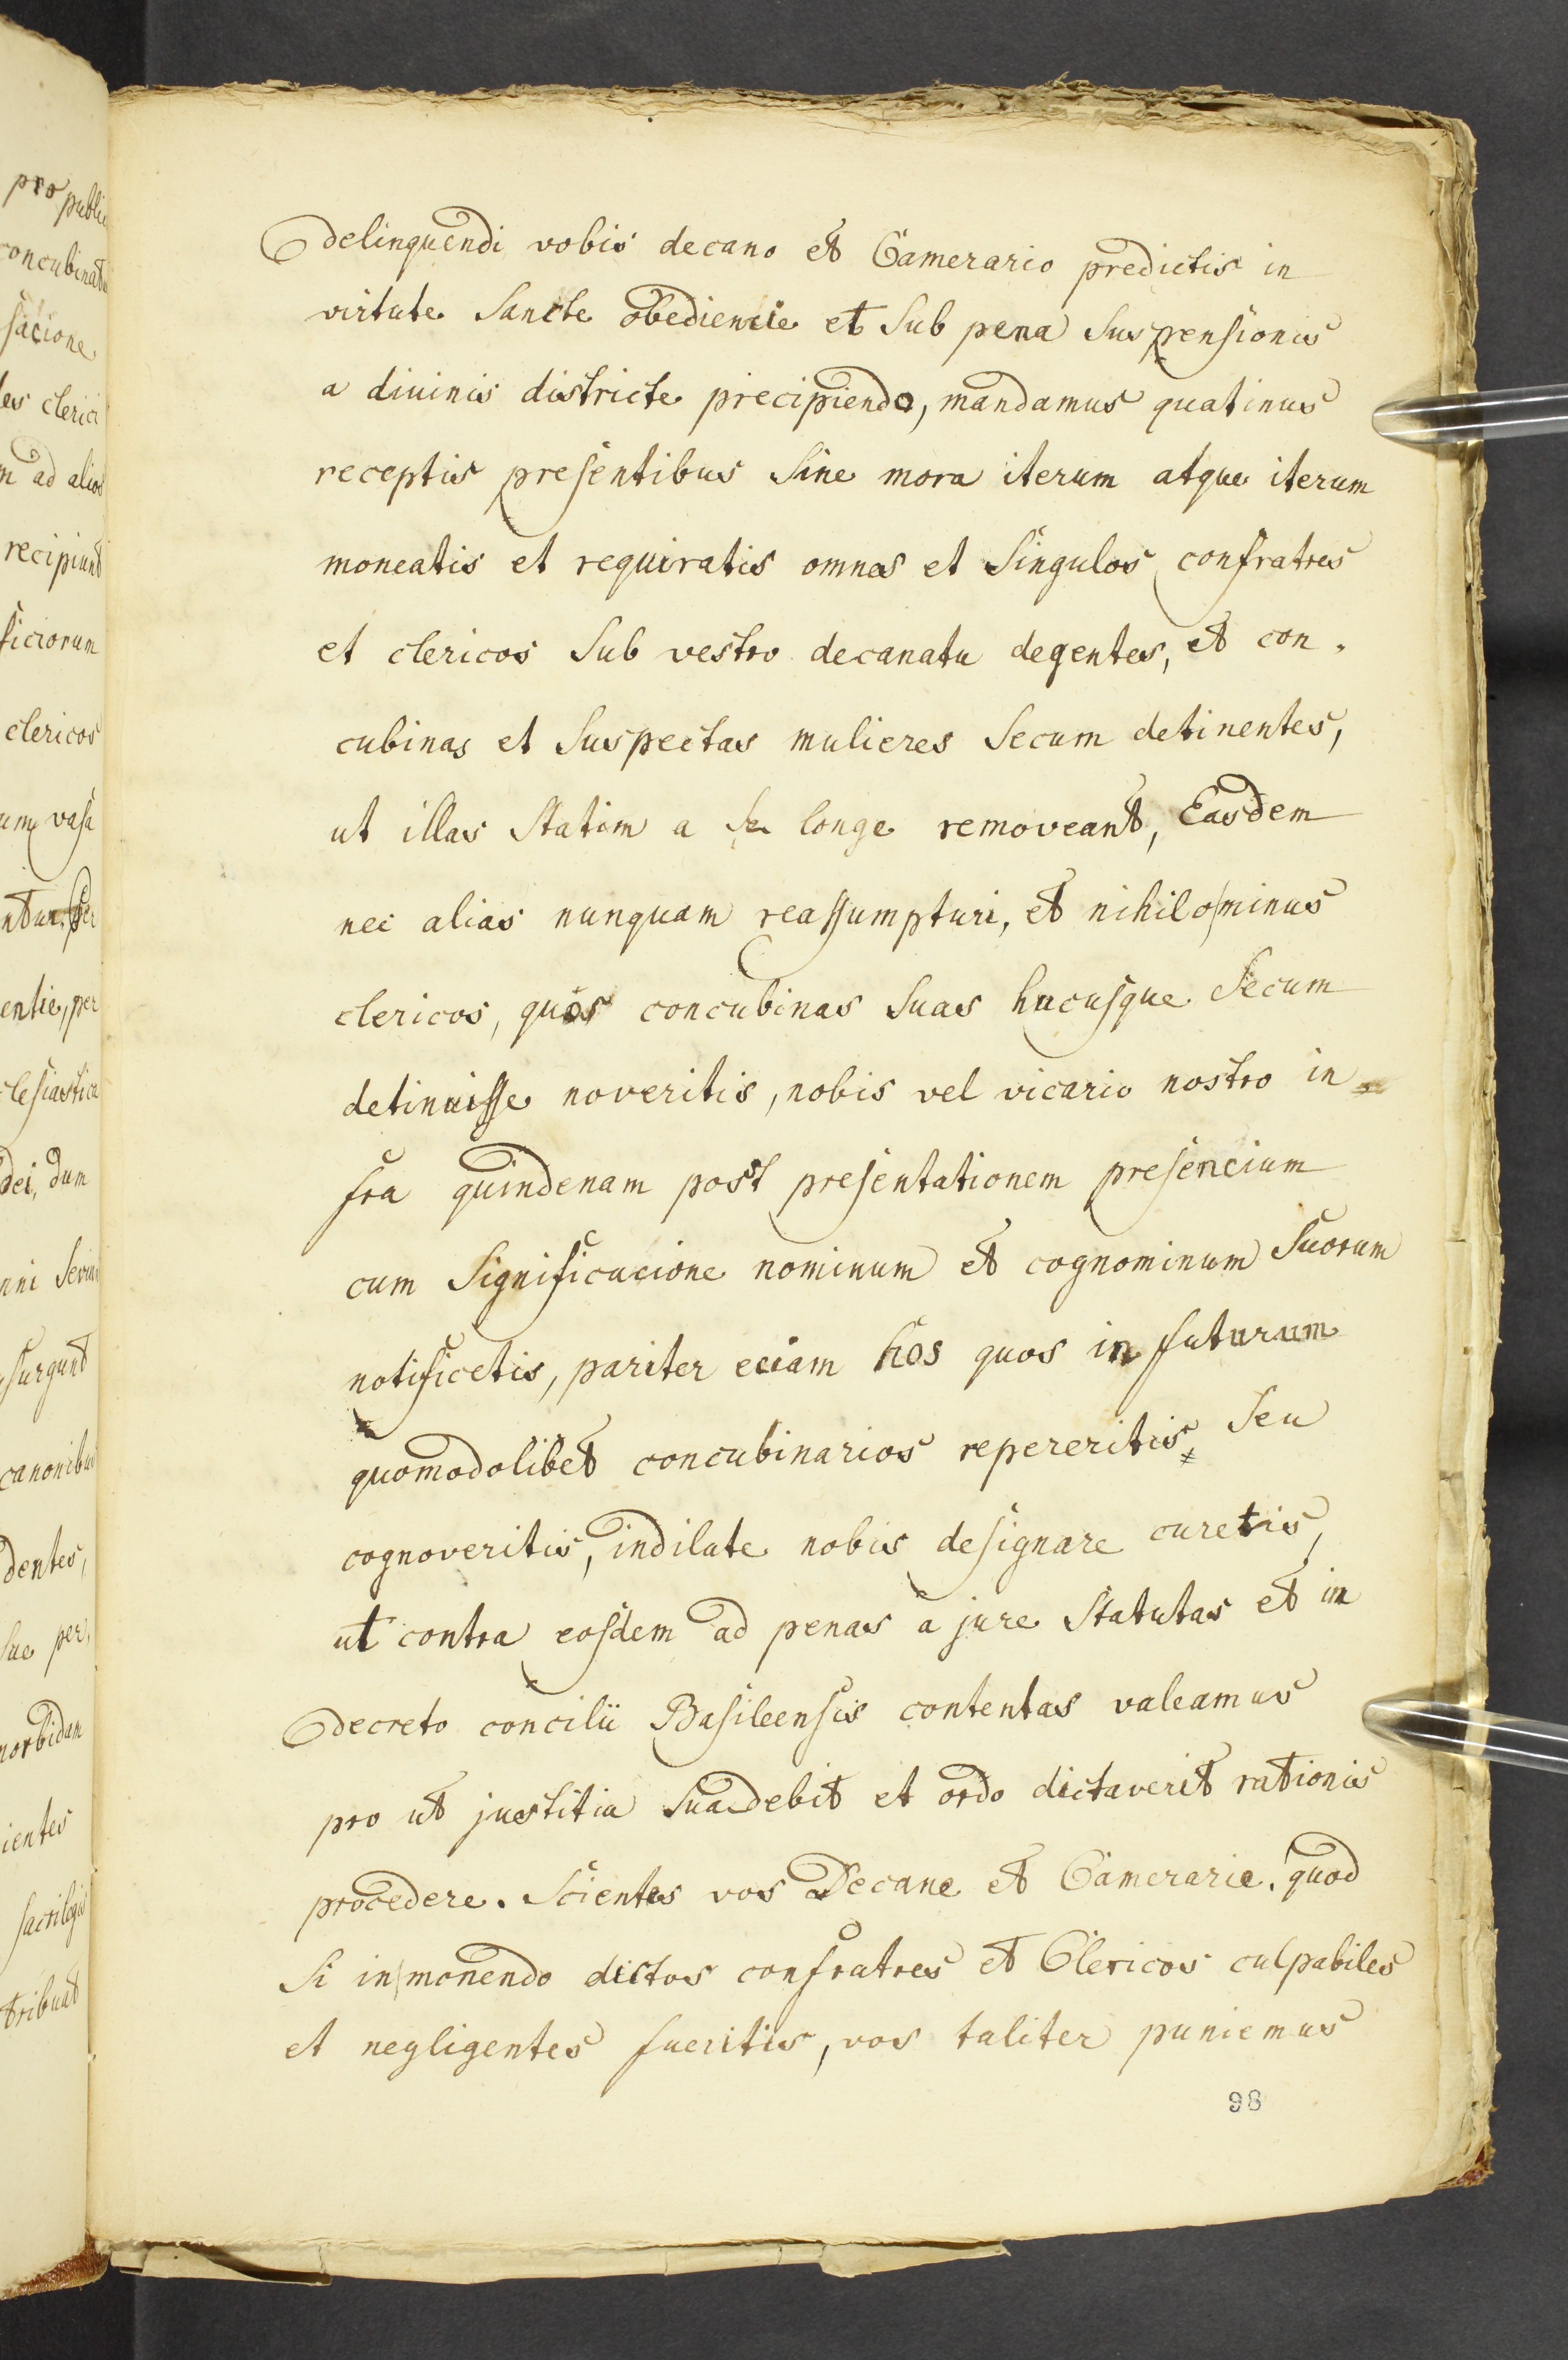 delinquendi vobis decano et Camerario predictis in
virtute Sancte obediencie et Sub pena Suspensionis
a divinis districte precipiendo, mandamus quatinus
receptis presentibus Sine mora iterum atque iterum
moneatis et requiratis omnes et Singulos confratres
et clericos Sub vestro decanatu degentes, et con-
cubinas et Suspectas mulieres Secum detinentes,
ut illas Statim a Se longe removeant, Easdem
nec alias nunquam reassumpturi, et nihilominus
clericos, quos concubinas Suas hucusque Secum
detinuisse noveritis, nobis vel vicario nostro in-
fra quindenam post presentationem presencium
cum Significacione nominum et cognominum Suorum
notificetis, pariter eciam hos quos in futurum
quomodolibet concubinarios repereritis Seu
cognoveritis, indilate nobis designare curetis,
ut contra eosdem ad penas a jure Statutas et in
decreto concilii Basileensis contentas valeamus
pro ut justitia Suadebit et ordo dictaverit rationis
procedere. Scientes vos Decane et Camerarie, quod
Si in monendo dictos confratres et Clericos culpabiles
et negligentes fueritis, vos taliter puniemus
98
pro public
concubinat
sacione
les clerici
m ad alios
recipiunt
ficiorum
clericos
um vasa
ntur. Per
entie, per
clesiastica
dei, dum
surgunt
canonibus
dentes,
Sue per,
morbidam
ientes
sacrilegii
tribuat